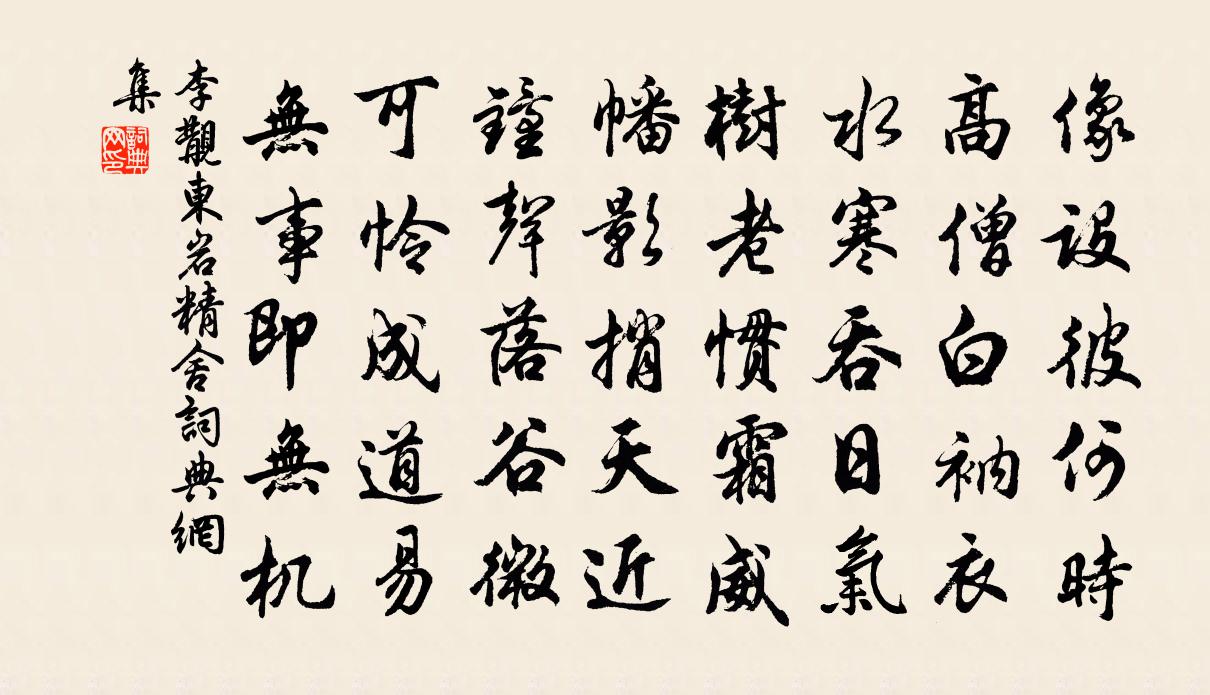 像設彼何時
高僧白衲衣
水寒吞日氣
樹老慣霜威
幡影捎天近
鐘聲落谷微
可怜成道易
無事即無机
李覯東岩精舍詞典網
集
詞典网印